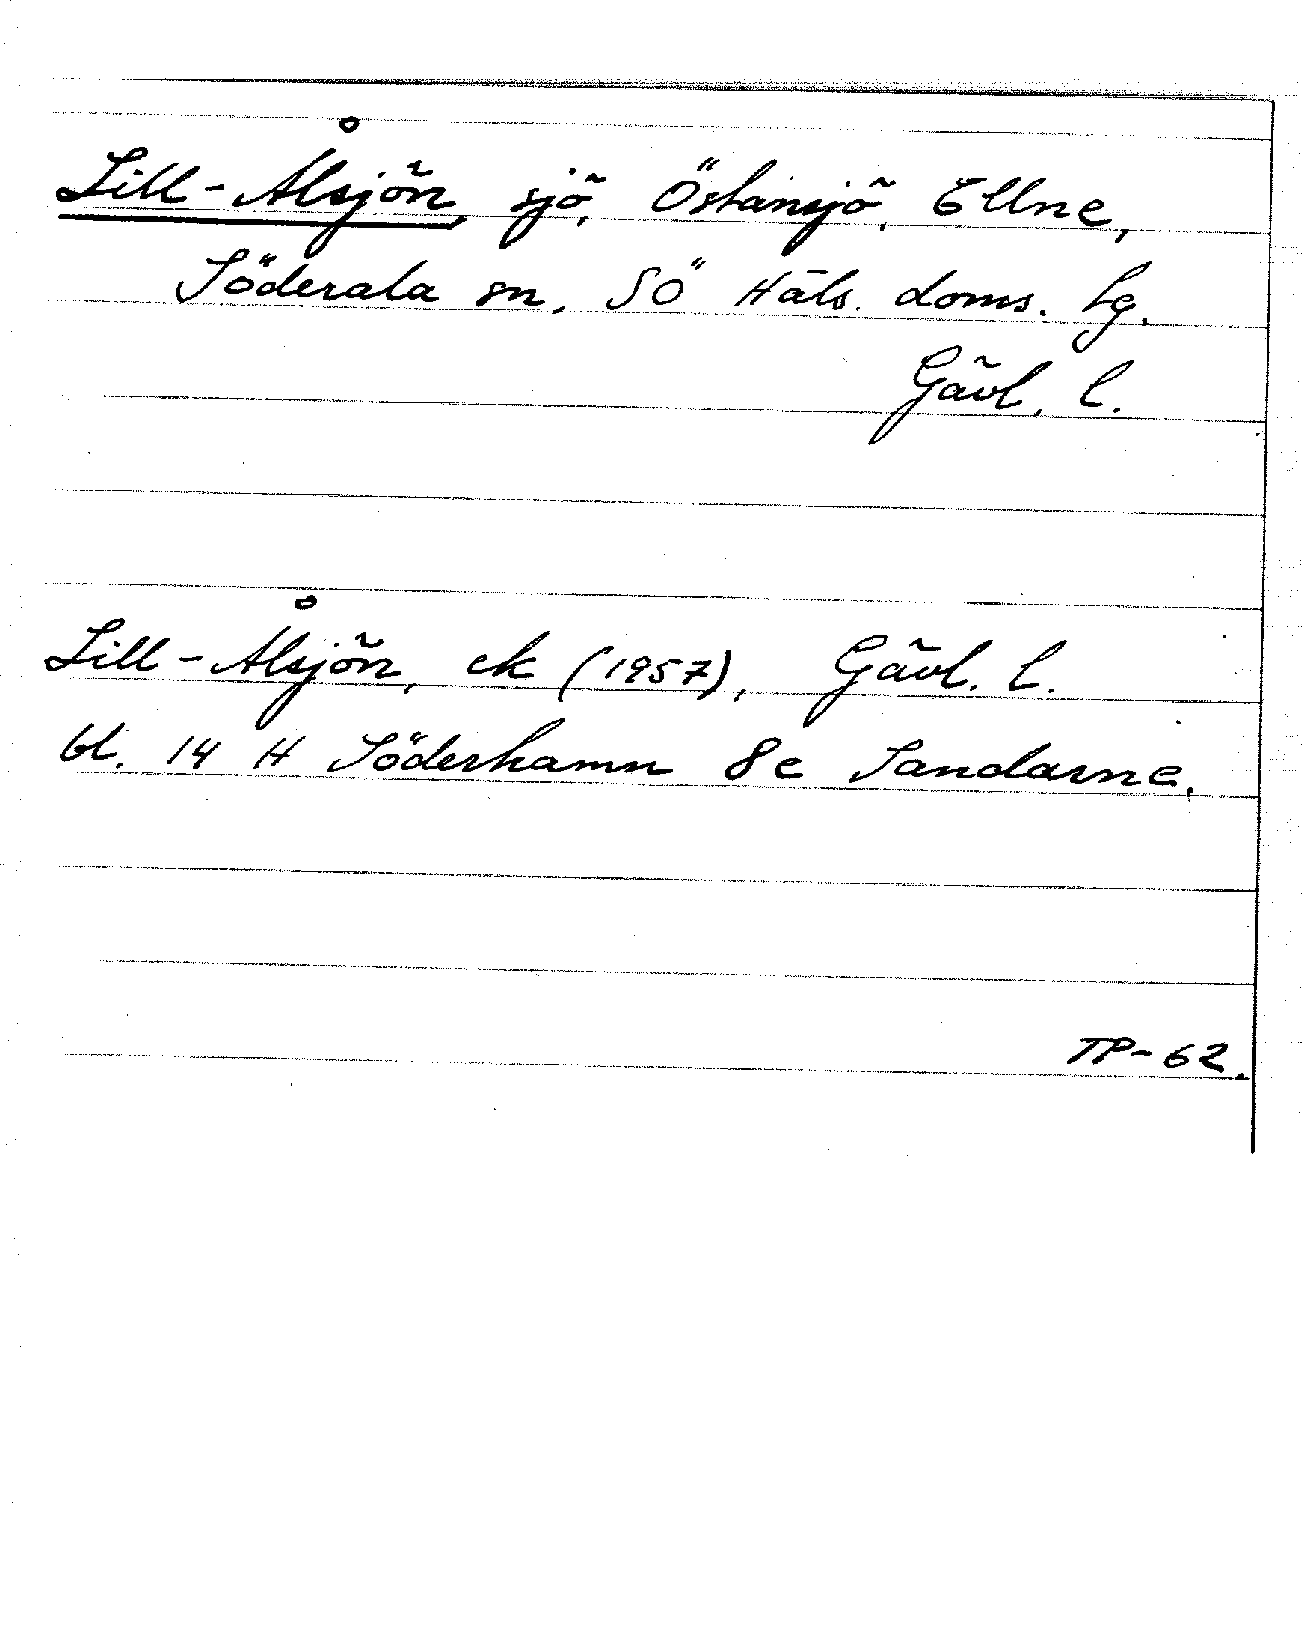 Lill-Ålsjön, sjö, Östansjö, Ellne,
Söderala sn, SÖ Häls. doms. lg.
Gävl. l.
Lill-Ålsjön, ek (1957), Gävl. l.
bl. 14 H Söderhamn 8e Sandarne.
TP-62.